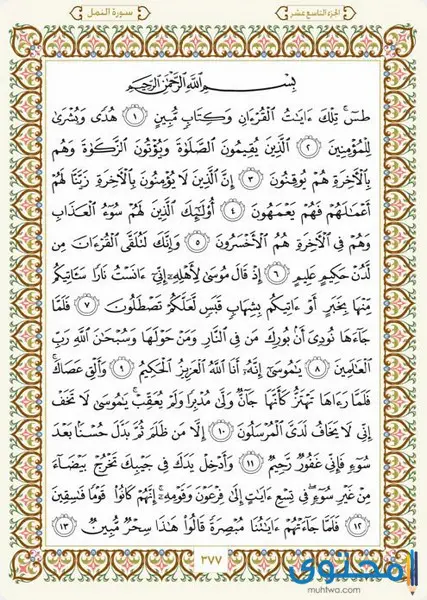 الجزء التاسع عشر
سورة النمل
بِسْمِ اللَّهِ الرَّحْمَٰنِ الرَّحِيمِ
طسٓ ۚ تِلْكَ ءَايَٰتُ الْقُرْءَانِ وَكِتَابٍ مُّبِينٍ ﴿١﴾ هُدًى وَبُشْرَىٰ
لِلْمُؤْمِنِينَ ﴿٢﴾ الَّذِينَ يُقِيمُونَ الصَّلَوٰةَ وَيُؤْتُونَ الزَّكَوٰةَ وَهُم
بِالْءَاخِرَةِ هُمْ يُوقِنُونَ ﴿٣﴾ إِنَّ الَّذِينَ لَا يُؤْمِنُونَ بِالْءَاخِرَةِ زَيَّنَّا لَهُمْ
أَعْمَٰلَهُمْ فَهُمْ يَعْمَهُونَ ﴿٤﴾ أُو۟لَٰٓئِكَ الَّذِينَ لَهُمْ سُوٓءُ الْعَذَابِ
وَهُمْ فِي الْءَاخِرَةِ هُمُ الْأَخْسَرُونَ ﴿٥﴾ وَإِنَّكَ لَتُلَقَّى الْقُرْءَانَ مِن
لَّدُنْ حَكِيمٍ عَلِيمٍ ﴿٦﴾ إِذْ قَالَ مُوسَىٰ لِأَهْلِهِۦٓ إِنِّيٓ ءَانَسْتُ نَارًا سَـَٔاتِيكُم
مِّنْهَا بِخَبَرٍ أَوْ ءَاتِيكُم بِشِهَابٍ قَبَسٍ لَّعَلَّكُمْ تَصْطَلُونَ ﴿٧﴾ فَلَمَّا
جَآءَهَا نُودِيَ أَنۢ بُورِكَ مَن فِي النَّارِ وَمَنْ حَوْلَهَا وَسُبْحَٰنَ اللَّهِ رَبِّ
الْعَٰلَمِينَ ﴿٨﴾ يَٰمُوسَىٰٓ إِنَّهُۥٓ أَنَا اللَّهُ الْعَزِيزُ الْحَكِيمُ ﴿٩﴾ وَأَلْقِ عَصَاكَ ۚ
فَلَمَّا رَءَاهَا تَهْتَزُّ كَأَنَّهَا جَآنٌّ وَلَّىٰ مُدْبِرًا وَلَمْ يُعَقِّبْ ۚ يَٰمُوسَىٰ لَا تَخَفْ
إِنِّي لَا يَخَافُ لَدَيَّ الْمُرْسَلُونَ ﴿١٠﴾ إِلَّا مَن ظَلَمَ ثُمَّ بَدَّلَ حُسْنًۢا بَعْدَ
سُوٓءٍ فَإِنِّي غَفُورٌ رَّحِيمٌ ﴿١١﴾ وَأَدْخِلْ يَدَكَ فِي جَيْبِكَ تَخْرُجْ بَيْضَآءَ
مِنْ غَيْرِ سُوٓءٍ ۖ فِي تِسْعِ ءَايَٰتٍ إِلَىٰ فِرْعَوْنَ وَقَوْمِهِۦٓ ۚ إِنَّهُمْ كَانُوا۟ قَوْمًا فَٰسِقِينَ
﴿١٢﴾ فَلَمَّا جَآءَتْهُمْ ءَايَٰتُنَا مُبْصِرَةً قَالُوا۟ هَٰذَا سِحْرٌ مُّبِينٌ ﴿١٣﴾
٣٧٧
محتوى
muhtwa.com